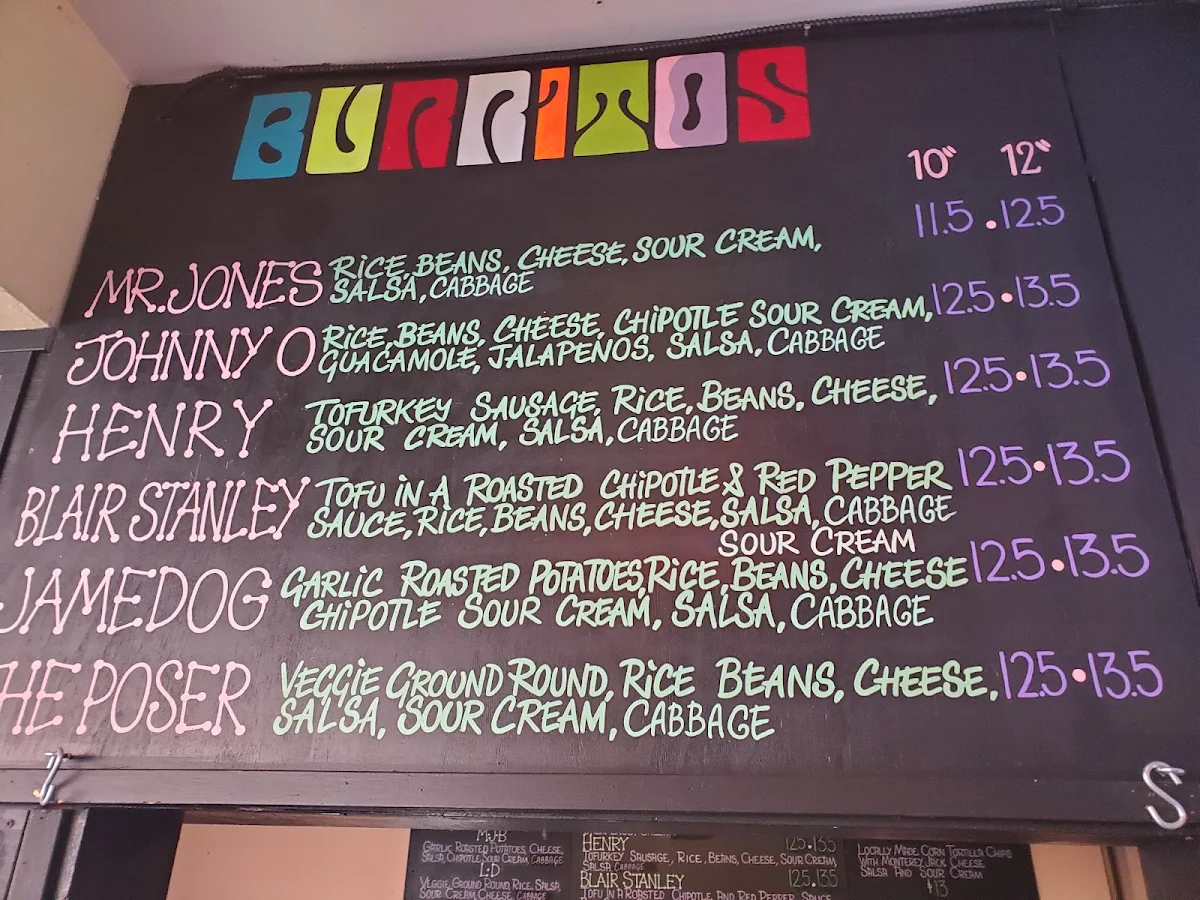 BURRITOS
10" 12"
11.5 • 12.5
MR. JONES RICE, BEANS, CHEESE, SOUR CREAM,
SALSA, CABBAGE
JOHNNY O RICE, BEANS, CHEESE, CHIPOTLE SOUR CREAM, 12.5 • 13.5
GUACAMOLE, JALAPENOS, SALSA, CABBAGE
HENRY TOFURKEY SAUSAGE, RICE, BEANS, CHEESE, 12.5 • 13.5
SOUR CREAM, SALSA, CABBAGE
BLAIR STANLEY TOFU IN A ROASTED CHIPOTLE & RED PEPPER 12.5 • 13.5
SAUCE, RICE, BEANS, CHEESE, SALSA, CABBAGE
SOUR CREAM
JAMEDOG GARLIC ROASTED POTATOES, RICE, BEANS, CHEESE 12.5 • 13.5
CHIPOTLE SOUR CREAM, SALSA, CABBAGE
HE POSER VEGGIE GROUND ROUND, RICE BEANS, CHEESE, 12.5 • 13.5
SALSA, SOUR CREAM, CABBAGE
GARLIC ROASTED POTATOES, CHEESE,
SALSA, CHIPOTLE SOUR CREAM, CABBAGE
L:D
VEGGIE GROUND ROUND, RICE, SALSA,
SOUR CREAM, CHEESE, CABBAGE
HENRY 12.5 • 13.5
TOFURKEY SAUSAGE, RICE, BEANS, CHEESE, SOUR CREAM
SALSA, CABBAGE
BLAIR STANLEY 12.5 13.5
TOFU IN A ROASTED CHIPOTLE AND RED PEPPER SAUCE
LOCALLY MADE CORN TORTILLA CHIPS
WITH MONTEREY JACK CHEESE
SALSA AND SOUR CREAM
$13